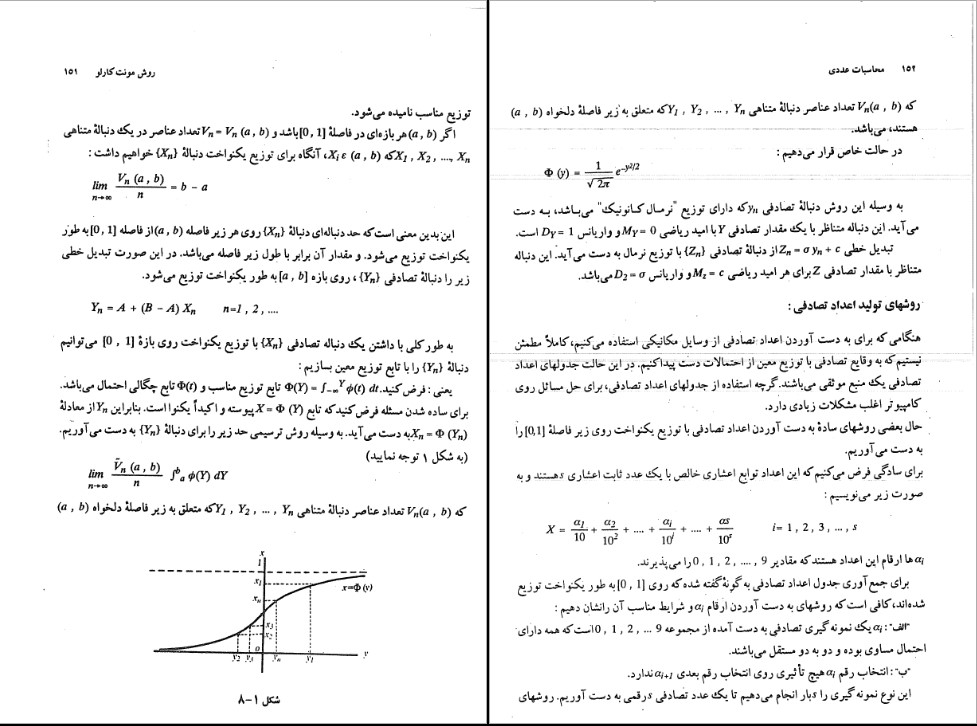 روش مونت کارلو ۱۵۱
توزیع مناسب نامیده می‌شود.
اگر (a , b) هر بازه‌ای در فاصلهٔ [0 , 1] باشد و Vn = Vn (a , b) تعداد عناصر در یک دنبالهٔ متناهی
X1 , X2 , ...., Xn که Xi ε (a , b)، آنگاه برای توزیع یکنواخت دنبالهٔ {Xn} خواهیم داشت :
lim n→∞ Vn (a , b) / n = b – a
این بدین معنی است که حد دنباله‌ای دنبالهٔ {Xn} روی هر زیر فاصله (a , b) از فاصله [0 , 1] به طور
یکنواخت توزیع می‌شود. و مقدار آن برابر با طول زیر فاصله می‌باشد. در این صورت تبدیل خطی
زیر را دنبالهٔ تصادفی {Yn}، روی بازه [a , b] به طور یکنواخت توزیع می‌شود.
Yn = A + (B – A) Xn n=1 , 2 , ....
به طور کلی با داشتن یک دنباله تصادفی {Xn} با توزیع یکنواخت روی بازهٔ [0 , 1] می‌توانیم
دنبالهٔ {Yn} را با تابع توزیع معین بسازیم :
یعنی : فرض کنید. Φ(Y) = ∫–∞Y ϕ(t) dt تابع توزیع مناسب و Φ(t) تابع چگالی احتمال می‌باشد.
برای ساده شدن مسئله فرض کنید که تابع X = Φ (Y) پیوسته و اکیداً یکنوا است. بنابراین Yn از معادلهٔ
Xn = Φ (Yn) به دست می‌آید. به وسیله روش ترسیمی حد زیر را برای دنبالهٔ {Yn} به دست می‌آوریم.
(به شکل ۱ توجه نمایید)
lim n→∞ Ṽn (a , b) / n ∫ba ϕ(Y) dY
که Vn(a , b) تعداد عناصر دنبالهٔ متناهی Y1 , Y2 , ... , Yn که متعلق به زیر فاصلهٔ دلخواه (a , b)
x
1
x1
x=Φ (y)
xn
x3
x2
0
y2 y3 yn y1 y
شکل ۱–۸
۱۵۲ محاسبات عددی
که Vn(a , b) تعداد عناصر دنبالهٔ متناهی Y1 , Y2 , ... , Yn که متعلق به زیر فاصلهٔ دلخواه (a , b)
هستند، می‌باشد.
در حالت خاص قرار می‌دهیم :
Φ (y) = 1 / √2π e–y2/2
به وسیله این روش دنبالهٔ تصادفی yn که دارای توزیع "نرمال کانونیک" می‌باشد، به دست
می‌آید. این دنباله متناظر با یک مقدار تصادفی Y با امید ریاضی My = 0 و واریانس Dy = 1 است.
تبدیل خطی Zn = σ yn + c از دنبالهٔ تصادفی {Zn} با توزیع نرمال به دست می‌آید. این دنباله
متناظر با مقدار تصادفی Z برای هر امید ریاضی Mz = c و واریانس D2 = σ می‌باشد.
روشهای تولید اعداد تصادفی :
هنگامی که برای به دست آوردن اعداد تصادفی از وسایل مکانیکی استفاده می‌کنیم، کاملاً مطمئن
نیستیم که به وقایع تصادفی با توزیع معین از احتمالات دست پیدا کنیم. در این حالت جدولهای اعداد
تصادفی یک منبع موثقی می‌باشند. گرچه استفاده از جدولهای اعداد تصادفی، برای حل مسائل روی
کامپیوتر اغلب مشکلات زیادی دارد.
حال بعضی روشهای سادهٔ به دست آوردن اعداد تصادفی با توزیع یکنواخت روی زیر فاصلهٔ [0,1] را
به دست می‌آوریم.
برای سادگی فرض می‌کنیم که این اعداد توابع اعشاری خالص با یک عدد ثابت اعشاری s هستند و به
صورت زیر می‌نویسیم :
X = α1/10 + α2/10² + .... + αi/10i + .... + αs/10s i= 1 , 2 , 3 , ... , s
αi ها ارقام این اعداد هستند که مقادیر 0 , 1 , 2 , .... , 9 را می‌پذیرند.
برای جمع آوری جدول اعداد تصادفی به گونهٔ گفته شده که روی [0 , 1] به طور یکنواخت توزیع
شده‌اند، کافی است که روشهای به دست آوردن ارقام αi و شرایط مناسب آن را نشان دهیم :
"الف" : αi یک نمونه گیری تصادفی به دست آمده از مجموعه 0 , 1 , 2 , ... 9 است که همه دارای
احتمال مساوی بوده و دو به دو مستقل می‌باشند.
"ب" : انتخاب رقم αi هیچ تأثیری روی انتخاب رقم بعدی αi+1 ندارد.
این نوع نمونه گیری را s بار انجام می‌دهیم تا یک عدد تصادفی s رقمی به دست آوریم. روشهای